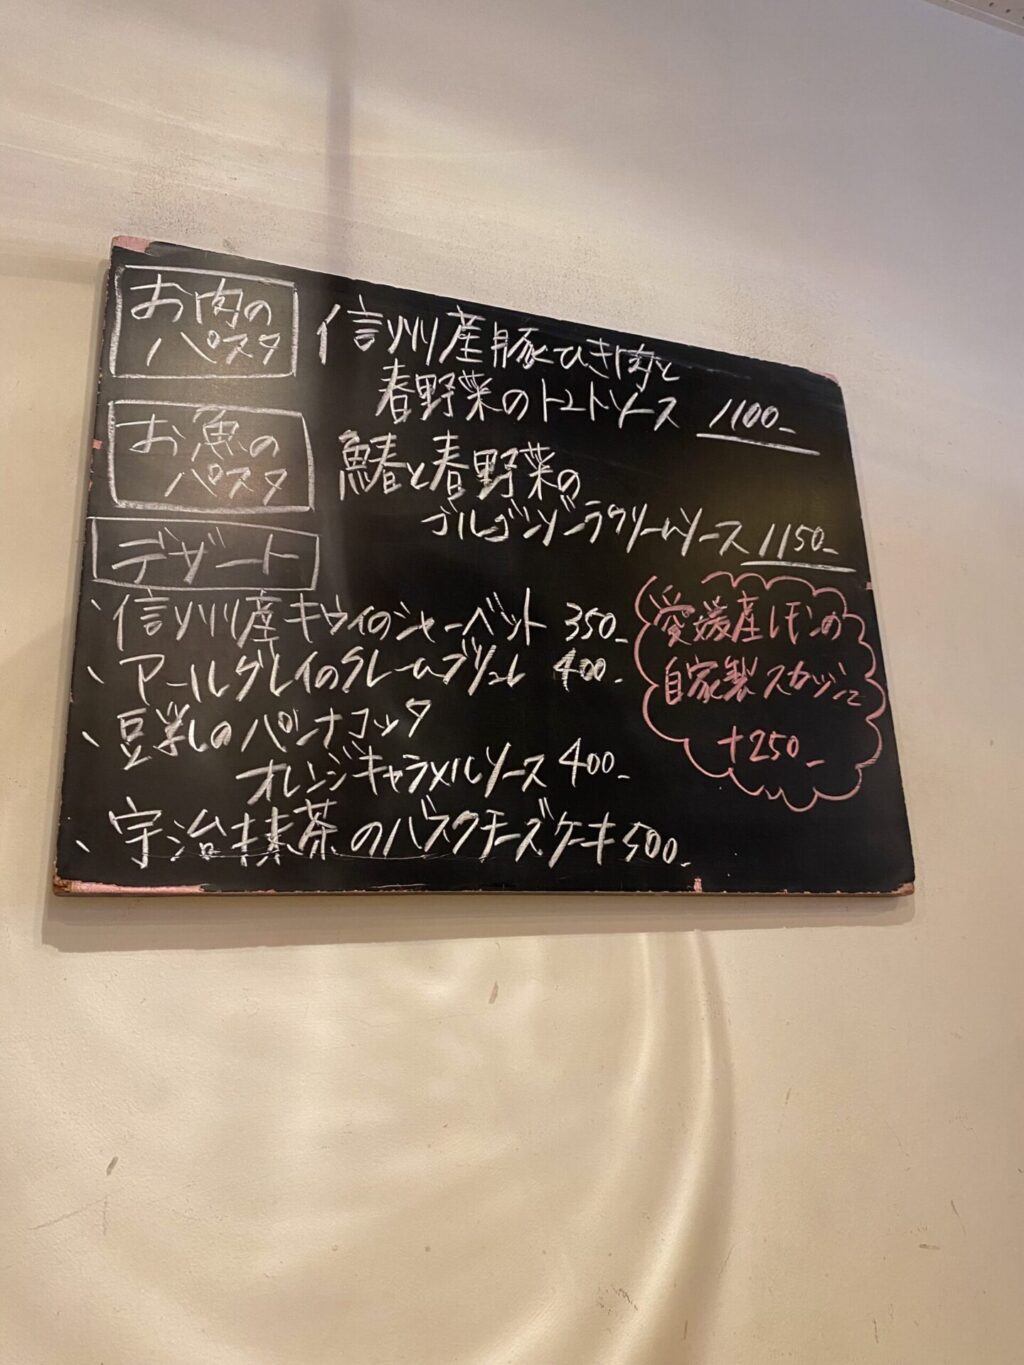 お肉の
パスタ
信州産豚ひき肉と
春野菜のトマトソース 1100-
お魚の
パスタ
鰆と春野菜の
ゴルゴンゾーラクリームソース 1150-
デザート
、信州産キウイのシャーベット 350-
、アールグレイのクレームブリュレ 400-
、豆乳のパンナコッタ
オレンジキャラメルソース 400-
、宇治抹茶のバスクチーズケーキ 500-
愛媛産レモンの
自家製スカッシュ
+250-